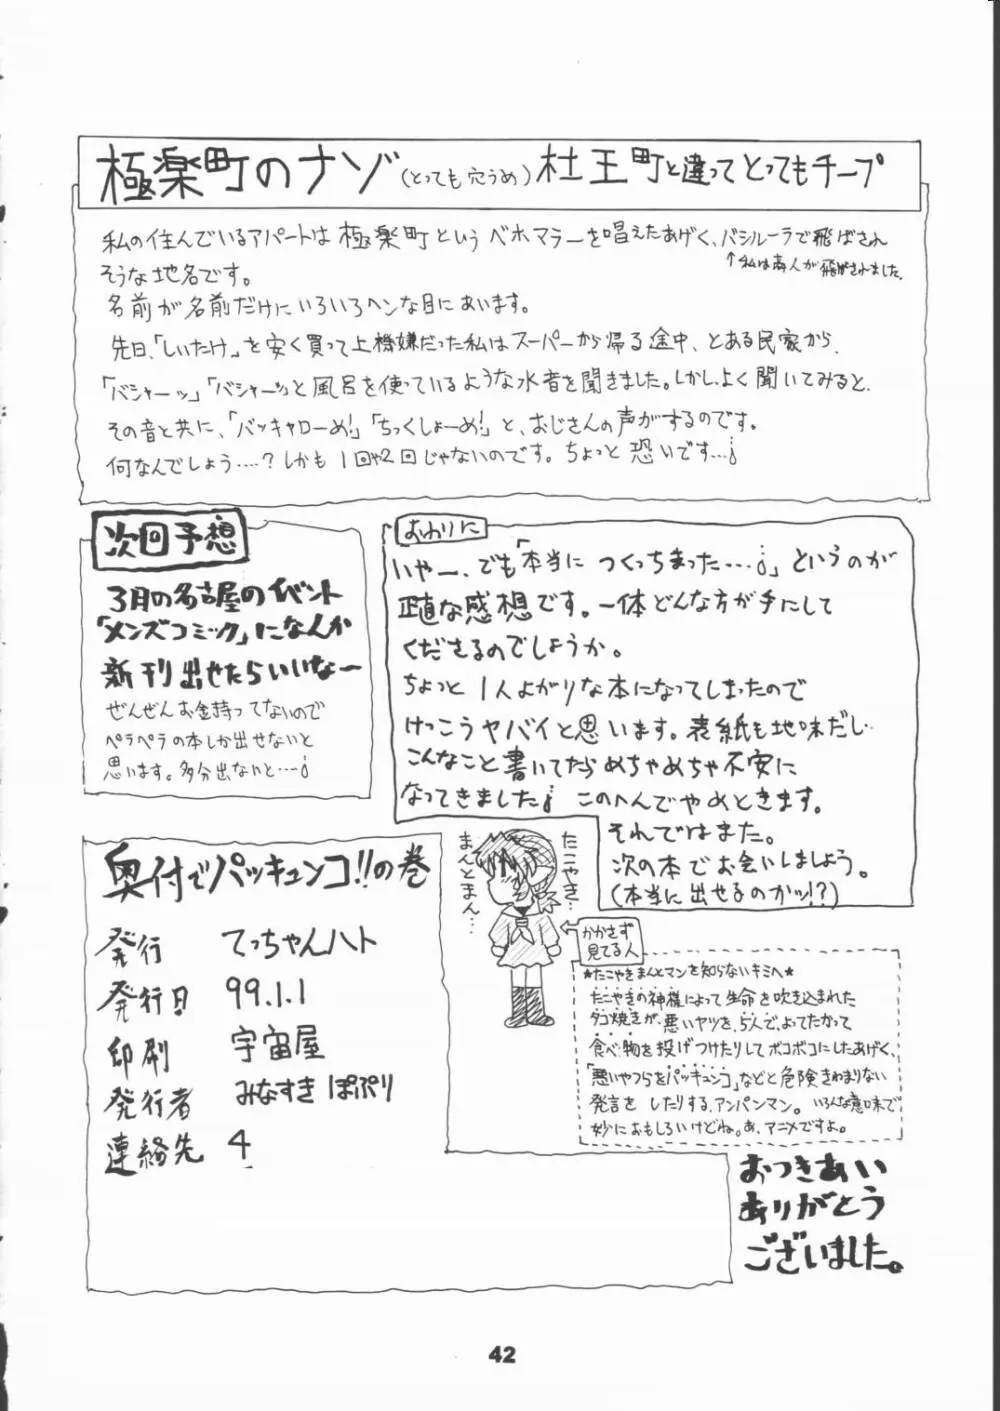 極楽町のナゾ(とっても穴うめ)杜王町と違ってとってもチープ
私の住んでいるアパートは極楽町というベホマラーを唱えたあげく、バシルーラで飛ばされ
そうな地名です。
↑私は商人が飛ばされました。
名前が名前だけにいろいろヘンな目にあいます。
先日、「しいたけ」を安く買って上機嫌だった私はスーパーから帰る途中、とある民家から、
「バシャーッ」「バシャーッ」と風呂を使っているような水音を聞きました。しかし、よく聞いてみると、
その音と共に、「バッキャローめ!」「ちっくしょーめ!」と、おじさんの声がするのです。
何なんでしょう……?しかも1回や2回じゃないのです。ちょっと恐いです…
次回予想
3月の名古屋のイベント
「メンズコミック」になんか
新刊出せたらいいなー
ぜんぜんお金持ってないので
ペラペラの本しか出せないと
思います。多分出ないと…
おわりに
いやー、でも「本当につくっちまった…」というのが
正直な感想です。一体どんな方が手にして
くださるのでしょうか。
ちょっと1人よがりな本になってしまったので
けっこうヤバイと思います。表紙も地味だし…
こんなこと書いてたらめちゃめちゃ不安に
なってきました このへんでやめときます。
それではまた。
次の本でお会いしましょう。
(本当に出せるのかッ!?)
奥付でパッキュンコ!!の巻
発行 てっちゃんハト
発行日 99.1.1
印刷 宇宙屋
発行者 みなすき ぽぷり
連絡先 4
たこやき…
まんとまん…
かかさず
見てる人
★たこやきまんとマンを知らないキミへ★
たこやきの神様によって生命を吹き込まれた
タコ焼きが、悪いヤツを、5人で、よってたかって
食べ物を投げつけたりしてボコボコにしたあげく、
「悪いやつらをパッキュンコ」などと危険きわまりない
発言をしたりする、アンパンマン。いろんな意味で
妙におもしろいけどね。あ、アニメですよ。
おつきあい
ありがとう
ございました。
42